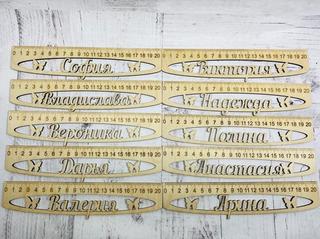 0 1 2 3 4 5 6 7 8 9 10 11 12 13 14 15 16 17 18 19 20
София
0 1 2 3 4 5 6 7 8 9 10 11 12 13 14 15 16 17 18 19 20
Владислава
0 1 2 3 4 5 6 7 8 9 10 11 12 13 14 15 16 17 18 19 20
Вероника
0 1 2 3 4 5 6 7 8 9 10 11 12 13 14 15 16 17 18 19 20
Дарья
0 1 2 3 4 5 6 7 8 9 10 11 12 13 14 15 16 17 18 19 20
Валерия
0 1 2 3 4 5 6 7 8 9 10 11 12 13 14 15 16 17 18 19 20
Виктория
0 1 2 3 4 5 6 7 8 9 10 11 12 13 14 15 16 17 18 19 20
Надежда
0 1 2 3 4 5 6 7 8 9 10 11 12 13 14 15 16 17 18 19 20
Полина
0 1 2 3 4 5 6 7 8 9 10 11 12 13 14 15 16 17 18 19 20
Анастасия
0 1 2 3 4 5 6 7 8 9 10 11 12 13 14 15 16 17 18 19 20
Арина